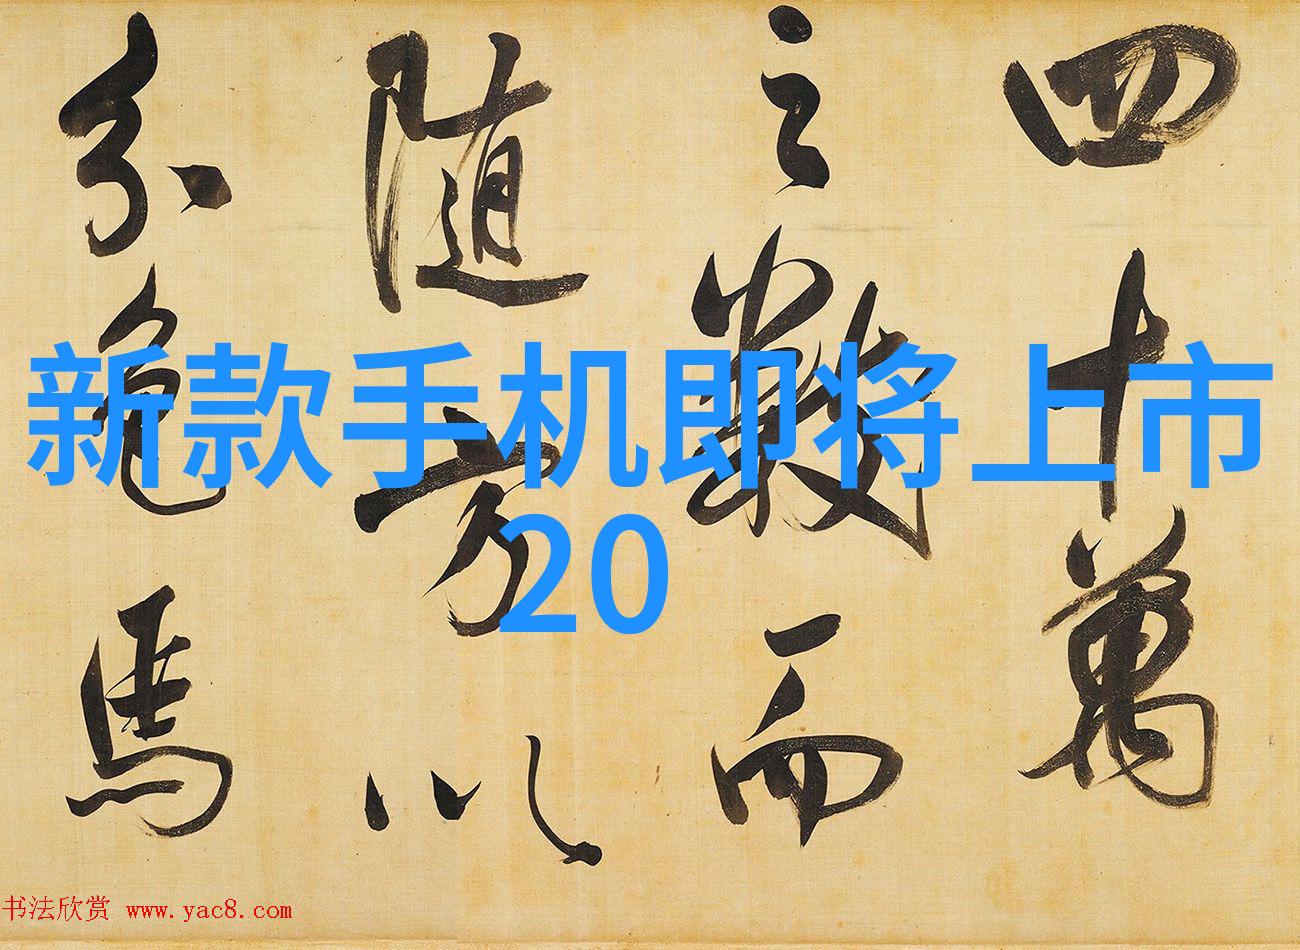 四十萬
之數而
随方以
分色馬
新款手机即将上市
20
书法欣赏 www.yac8.com